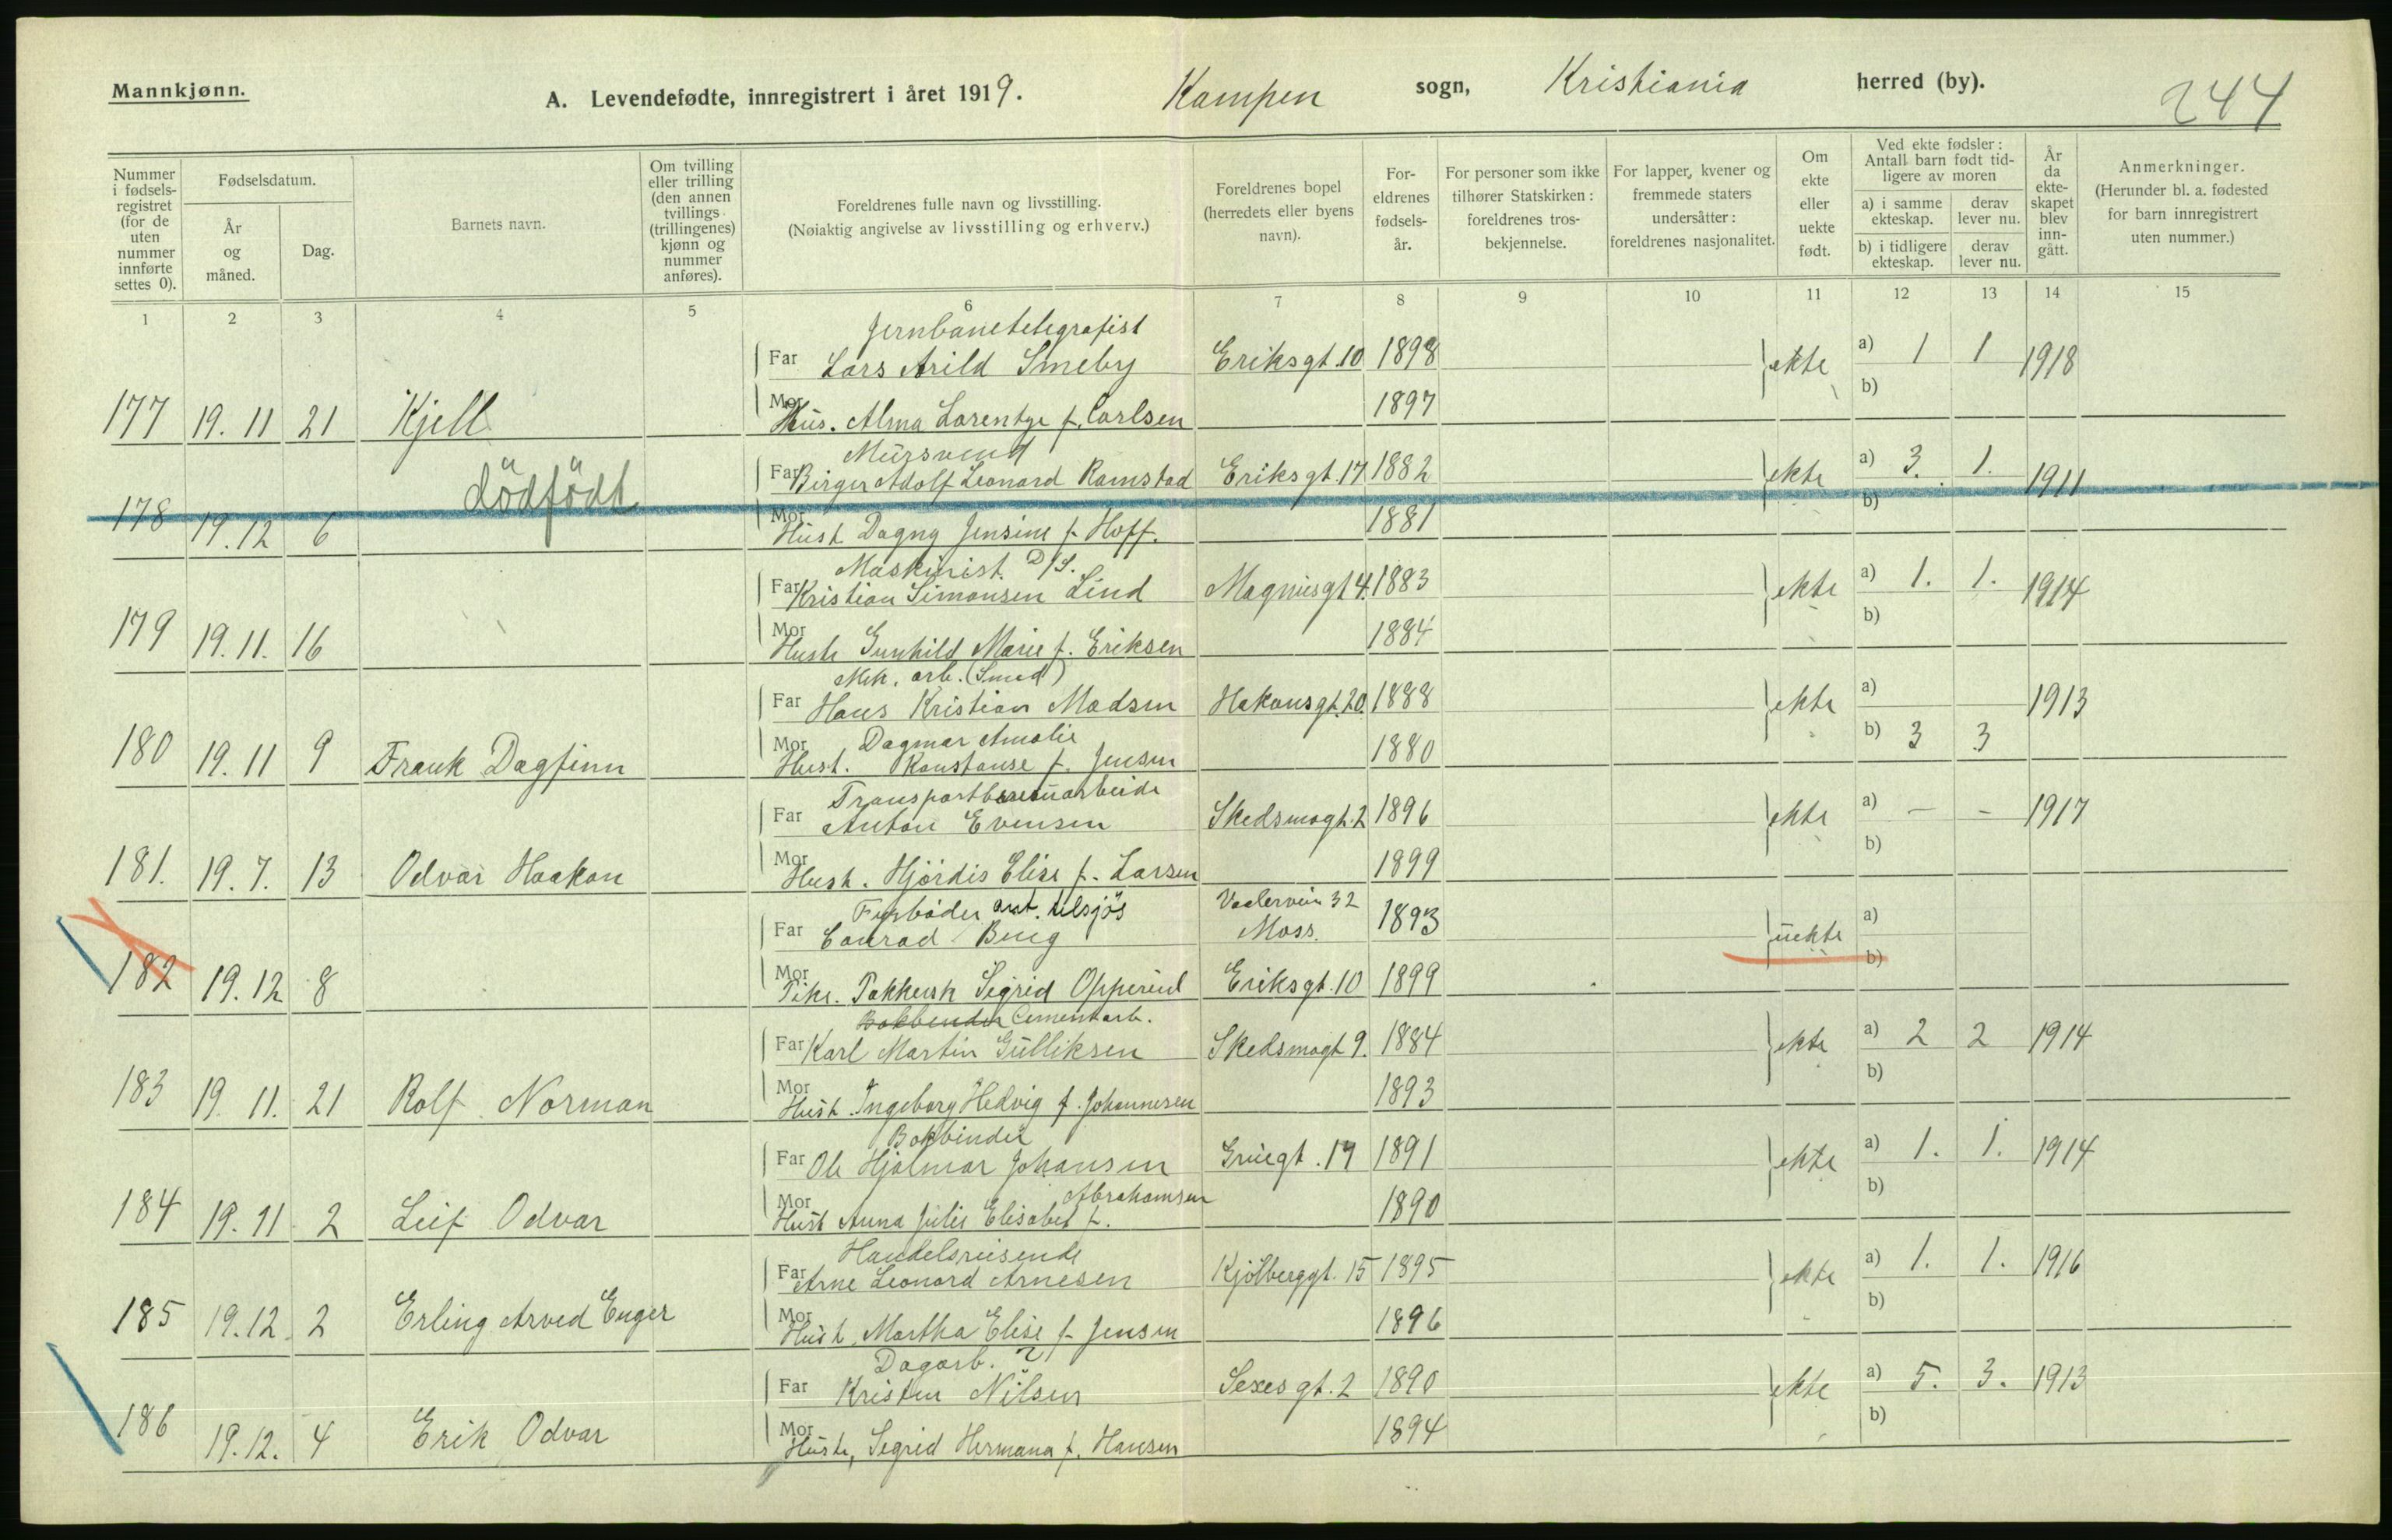 Mannkjønn.
A. Levendefødte, innregistrert i året 1919. Kampen sogn, Kristiania herred (by). 244
Nummer i fødselsregistret (for de uten nummer innførte settes 0).
Fødselsdatum.
År og måned.
Dag.
Barnets navn.
Om tvilling eller trilling (den annen tvillings (trillingenes) kjønn og nummer anføres).
Foreldrenes fulle navn og livsstilling.
(Nøiaktig angivelse av livsstilling og erhverv.)
Foreldrenes bopel (herredets eller byens navn).
Foreldrenes fødselsår.
For personer som ikke tilhører Statskirken: foreldrenes trosbekjennelse.
For lapper, kvener og fremmede staters undersåtter: foreldrenes nasjonalitet.
Om ekte eller uekte født.
Ved ekte fødsler: Antall barn født tidligere av moren
a) i samme ekteskap.
derav lever nu.
b) i tidligere ekteskap.
derav lever nu.
År da ekteskapet blev inngått.
Anmerkninger.
(Herunder bl. a. fødested for barn innregistrert uten nummer.)
1 2 3 4 5 6 7 8 9 10 11 12 13 14 15
Jernbanetelegrafist
Far Lars Arild Smeby Eriksgt. 10 1898 ekte a) 1 1 1918
b)
177 19.11 21 Kjell Mor Hus. Alma Larentze f. Carlsen 1897
Mursvend
Far Birger Adolf Leonard Ramstad Eriksgt. 17 1882 ekte a) 3. 1. 1911
b)
178 19.12 6 dödfödt Mor Hust Dagny Jensine f. Hoff. 1881
Maskinist D/S.
Far Kristian Simonsen Lind Magnusgt 4. 1883 ekte a) 1. 1. 1914
b)
179 19.11. 16 Mor Hustr Gunhild Marie f. Eriksen 1884
Mek. arb. (Smed)
Far Hans Kristian Madsen Hakonsgt. 20. 1888 ekte a) 1913
b) 3 3
180 19.11 9 Frank Dagfinn Mor Hust. Dagmar Amalie Konstanse f. Jensen 1880
Transportbureauarbeide
Far Anton Evensen Skedsmogt. 2 1896 ekte a) - - 1917
b)
181. 19.7. 13 Odvar Haakon Mor Hust. Hjördis Elise f. Larsen 1899
Fyrböder tilsjös
Far Conrad Berg Vaalerveien 32 Moss. 1893 uekte a)
b)
182 19.12 8 Mor Pike. Pakkersk Sigrid Opperud Eriksgt. 10 1899
Bokbinder Cementarb.
Far Karl Martin Gulliksen Skedsmogt 9. 1884 ekte a) 2 2 1914
b)
183 19.11. 21 Rolf Norman Mor Hust. Ingeborg Hedvig f. Johannesen 1893
Bokbinder
Far Ole Hjalmar Johansen Gruegt. 17 1891 ekte a) 1. 1. 1914
b)
184 19.11 2 Leif Odvar Mor Hust Anna Julie Elisabet f. Abrahamsen 1890
Handelsreisende
Far Arne Leonard Arnesen Kjölberggt. 15 1895 ekte a) 1. 1. 1916
b)
185 19.12. 2 Erling Arved Enger Mor Hust. Martha Elise f. Jensen 1896
Dagarb. ?
Far Kristen Nilsen Sexesgt. 2 1890 ekte a) 5. 3. 1913
b)
186 19.12. 4 Erik Odvar Mor Hustr, Sigrid Hermana f. Hansen 1894